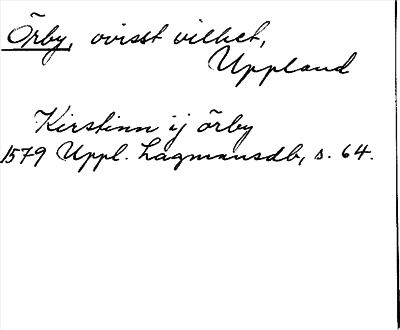 Örby, ovisst vilket,
Uppland
Kirstinn ij örby
1579 Uppl. Lagmansdb, s. 64.